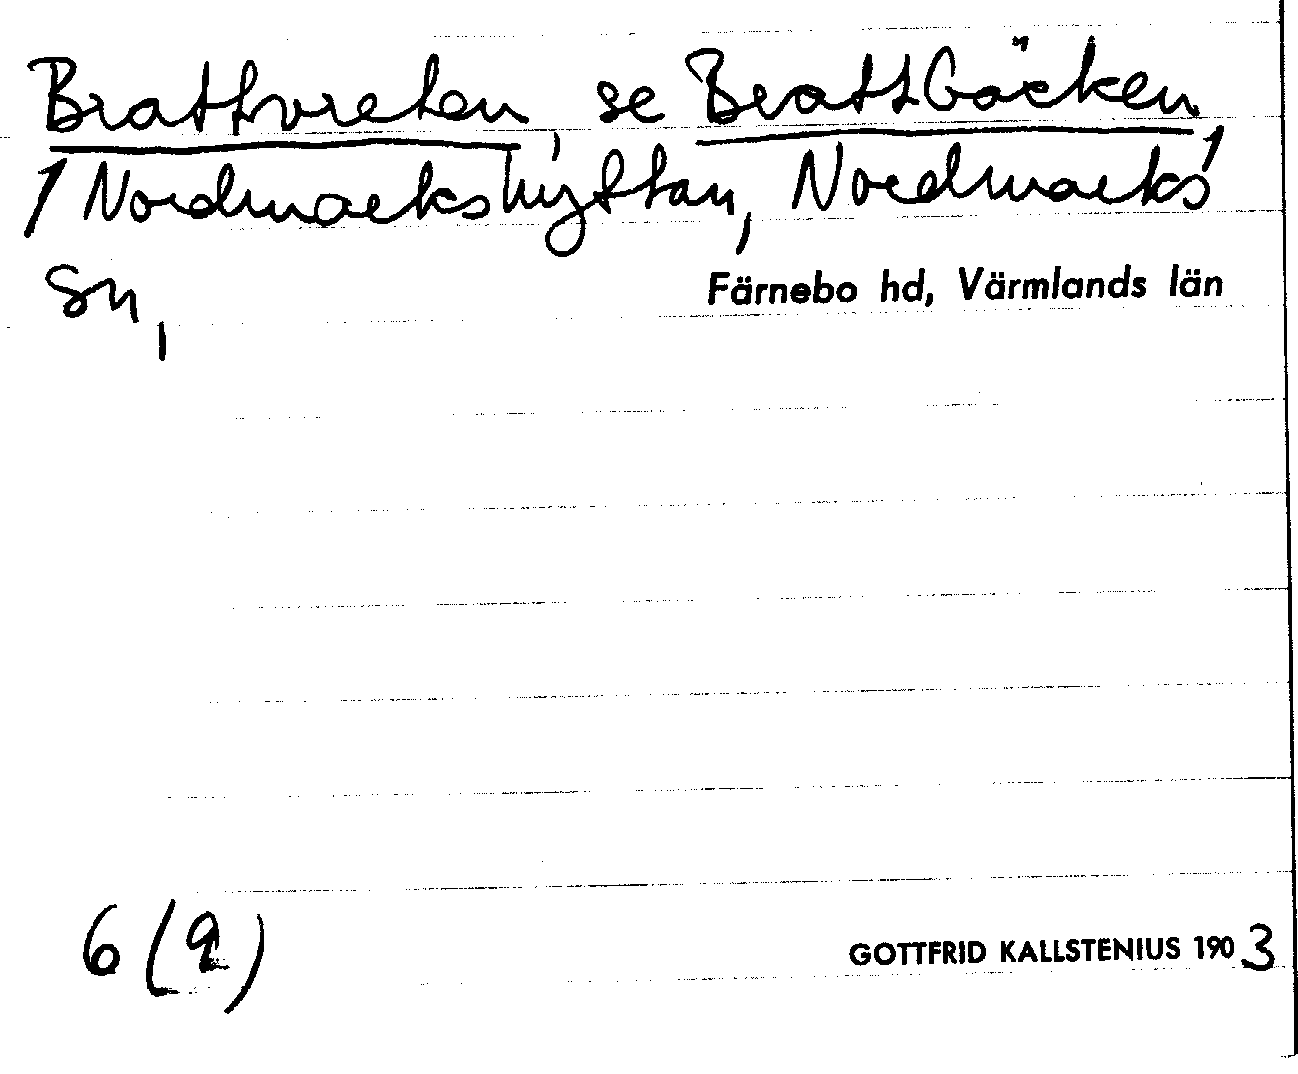 Brattvreten, se Brattbäcken,
/ Nordmarkshyttan, Nordmarks
sn,
Färnebo hd, Värmlands län
6 (q)
GOTTFRID KALLSTENIUS 1903